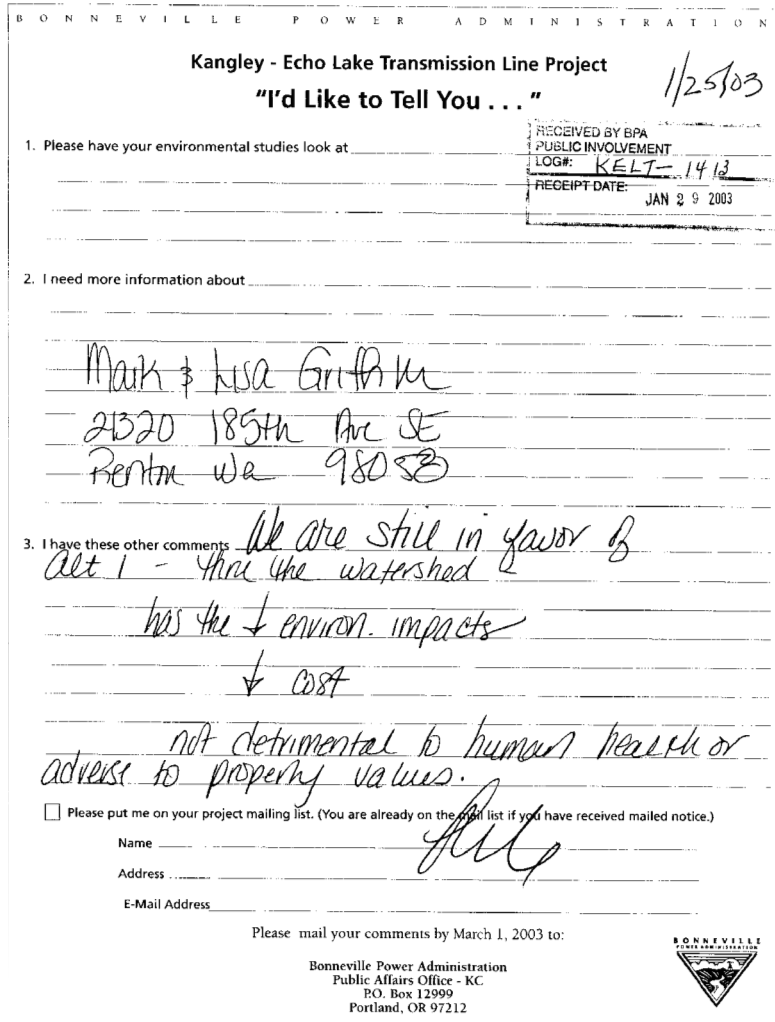 BONNEVILLE POWER ADMINISTRATION
Kangley - Echo Lake Transmission Line Project
1/25/03
"I'd Like to Tell You . . . "
RECEIVED BY BPA
PUBLIC INVOLVEMENT
LOG#: KELT- 1413
RECEIPT DATE:
JAN 29 2003
1. Please have your environmental studies look at
2. I need more information about
Mark & Lisa Griffith
21320 185th Ave SE
Renton Wa 98058
3. I have these other comments We are still in favor of
alt 1 - thru the watershed
has the ↓ environ. impacts
↓ cost
not detrimental to human health or
adverse to property values.
Please put me on your project mailing list. (You are already on the mail list if you have received mailed notice.)
Name
Address
E-Mail Address
Please mail your comments by March 1, 2003 to:
Bonneville Power Administration
Public Affairs Office - KC
P.O. Box 12999
Portland, OR 97212
BONNEVILLE
POWER ADMINISTRATION